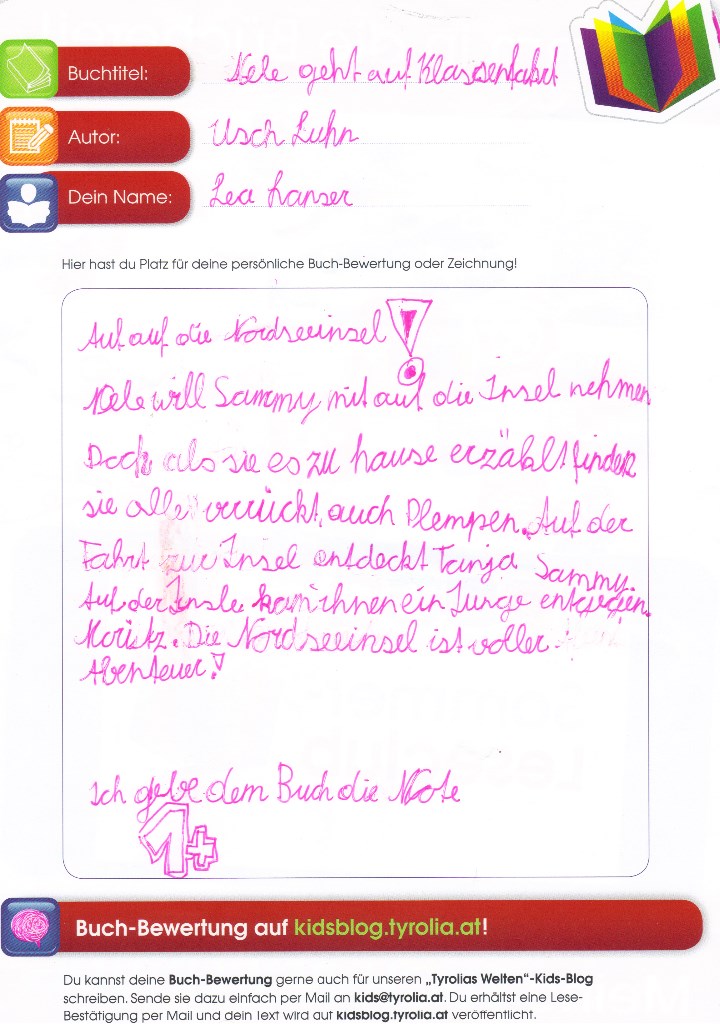 Buchtitel: Nele geht auf Klassenfahrt
Autor: Usch Luhn
Dein Name: Lea Lanser
Hier hast du Platz für deine persönliche Buch-Bewertung oder Zeichnung!
Auf auf die Nordseeinsel!
Nele will Sammy mit auf die Insel nehmen
Doch als sie es zu hause erzählt finden
sie alle verrückt, auch Plempen. Auf der
Fahrt zur Insel entdeckt Tanja Sammy.
Auf der Insle kam ihnen ein Junge entgegen.
Moritz. Die Nordseeinsel ist voller
Abenteuer!
Ich gebe dem Buch die Note
1+
Buch-Bewertung auf kidsblog.tyrolia.at!
Du kannst deine Buch-Bewertung gerne auch für unseren „Tyrolias Welten“-Kids-Blog
schreiben. Sende sie dazu einfach per Mail an kids@tyrolia.at. Du erhältst eine Lese-
Bestätigung per Mail und dein Text wird auf kidsblog.tyrolia.at veröffentlicht.